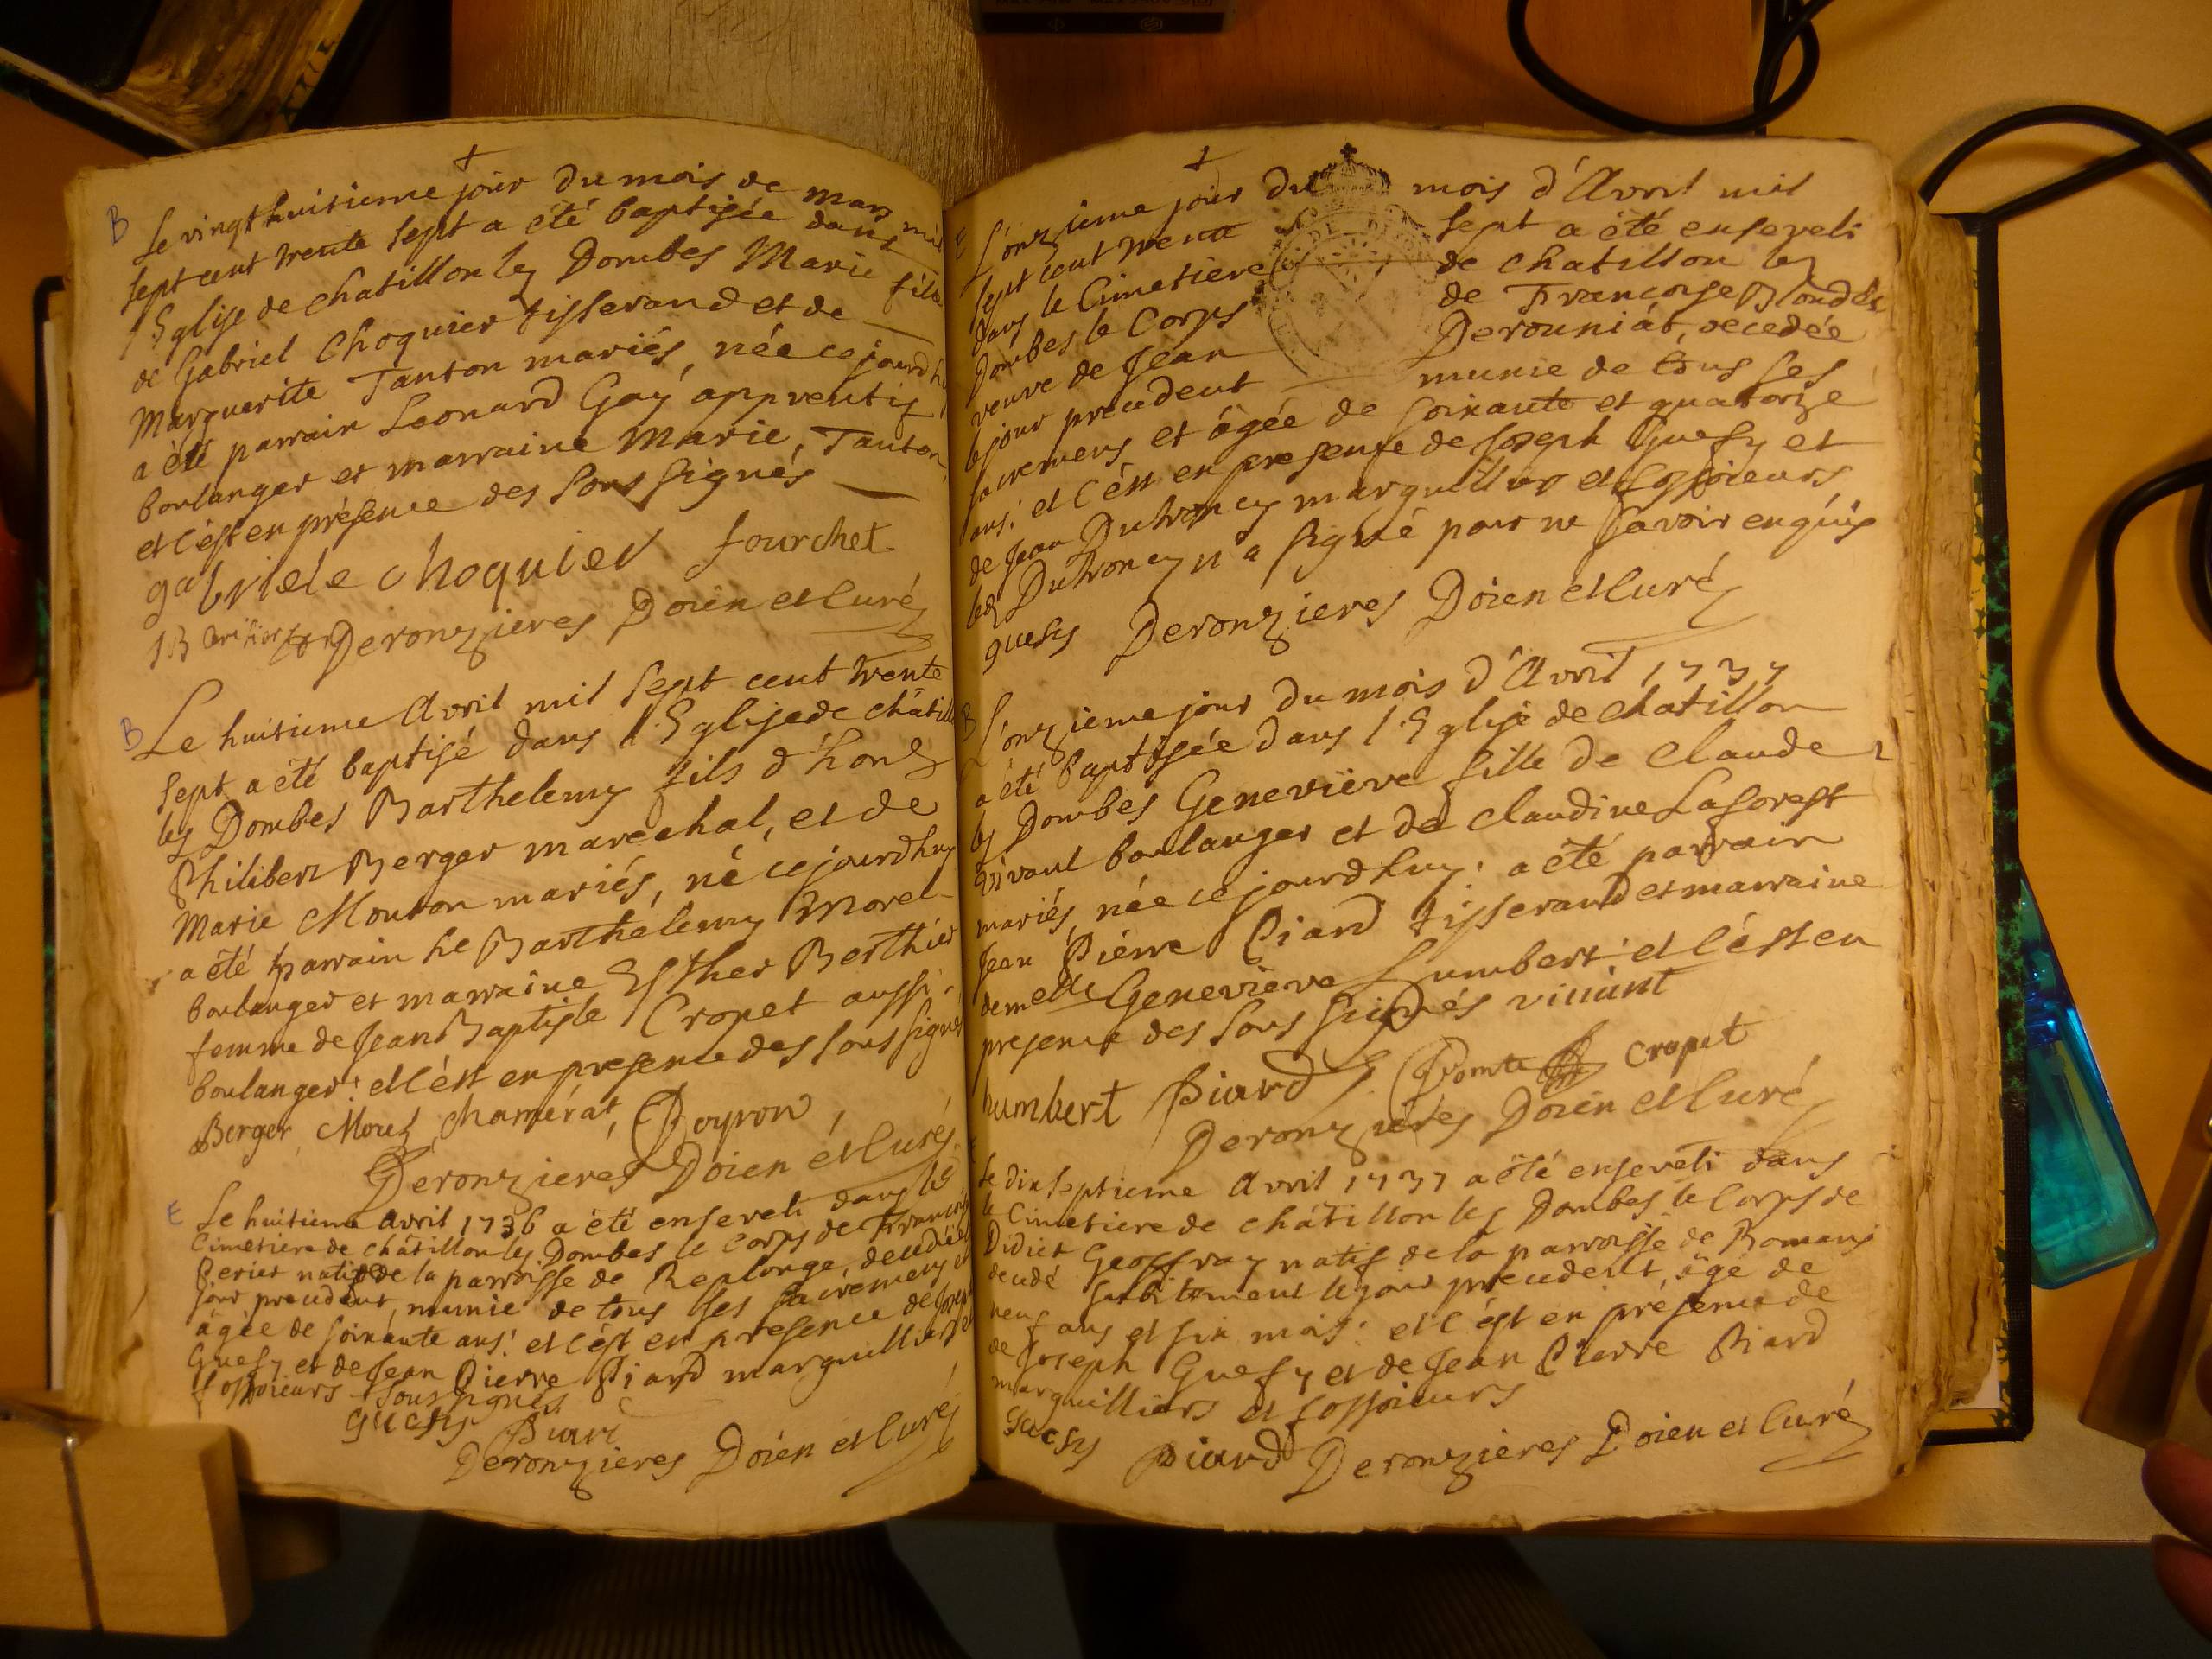 B Le vingt huitieme jour du mois de mars mil
sept cent trente sept a été baptisée dans
l'Eglise de chatillon les Dombes Marie fille
de Gabriel Choquier tisserand et de
Marguerite Tanton mariés, née ce jourdhuy
a été parrain Leonard Gay apprentif
boulanger et marraine Marie Tanton
et c'est en présence des sous signés
gabriele choquier fourchet
Deronzieres Doien et Curé
B Le huitieme Avril mil sept cent trente
sept a été baptisé dans l'Eglise de châtillon
les Dombes Barthelemy fils d'hon
Philibert Berger marechal, et de
Marie Mouton mariés, né ce jourdhuy
a été parrain he Barthelemy Morel
boulanger et marraine Esther Berthier
femme de Jean Baptiste Cropet aussi
boulanger: et c'est en presence des sous signés
Berger Morel chamérat, Poyron
Deronzieres Doien et Curé
E Le huitieme Avril 1736 a été enseveli dans le
Cimetiere de châtillon les Dombes le Corps de Francoise
Perier native de la parroisse de Replonge, decedée
jour precedent, munie de tous ses sacremens et
âgée de soixante ans: et c'est en presence de Joseph
Guesy et de Jean Pierre Piard marguilliers et
fossoieurs sous signés
guesy Piard
Deronzieres Doien et Curé
E L'onzieme jour du mois d'Avril mil
sept cent trente sept a été enseveli
dans le Cimetiere de chatillon les
Dombes le Corps de Francoise Blondel
veuve de Jean Derouniát, decedée
le jour precedent munie de tous ses
sacremens et âgée de soixante et quatorze
ans: et c'est en presence de Joseph Guesy et
de Jean Dutroncy marguilliers et fossoieurs
led Dutroncy n'a signé pour ne savoir enquis
guesy Deronzieres Doien et Curé
B L'onzieme jour du mois d'Avril 1737
a été baptisée dans l'Eglise de chatillon
les Dombes Geneviève fille de Claude
boulanger et de Claudine Laforest
mariés, née ce jourdhuy: a été parrain
Jean Piérre Piard tisserand et marraine
demelle Geneviève humbert: et c'est en
presence des sous signés
humbert Piard Comte Cropet
Deronzieres Doien et Curé
Le dix septieme Avril 1737 a été enseveli dans
le Cimetiere de châtillon les Dombes le Corps de
Didier Geoffray natif de la parroisse de Romans
decedé subitement le jour precedent, âgé de
neuf ans et six mois: et c'est en présence de
de Joseph Guesy et de Jean Pierre Piard
marguilliers et fossoieurs
Guesy Piard Deronzieres Doien et Curé